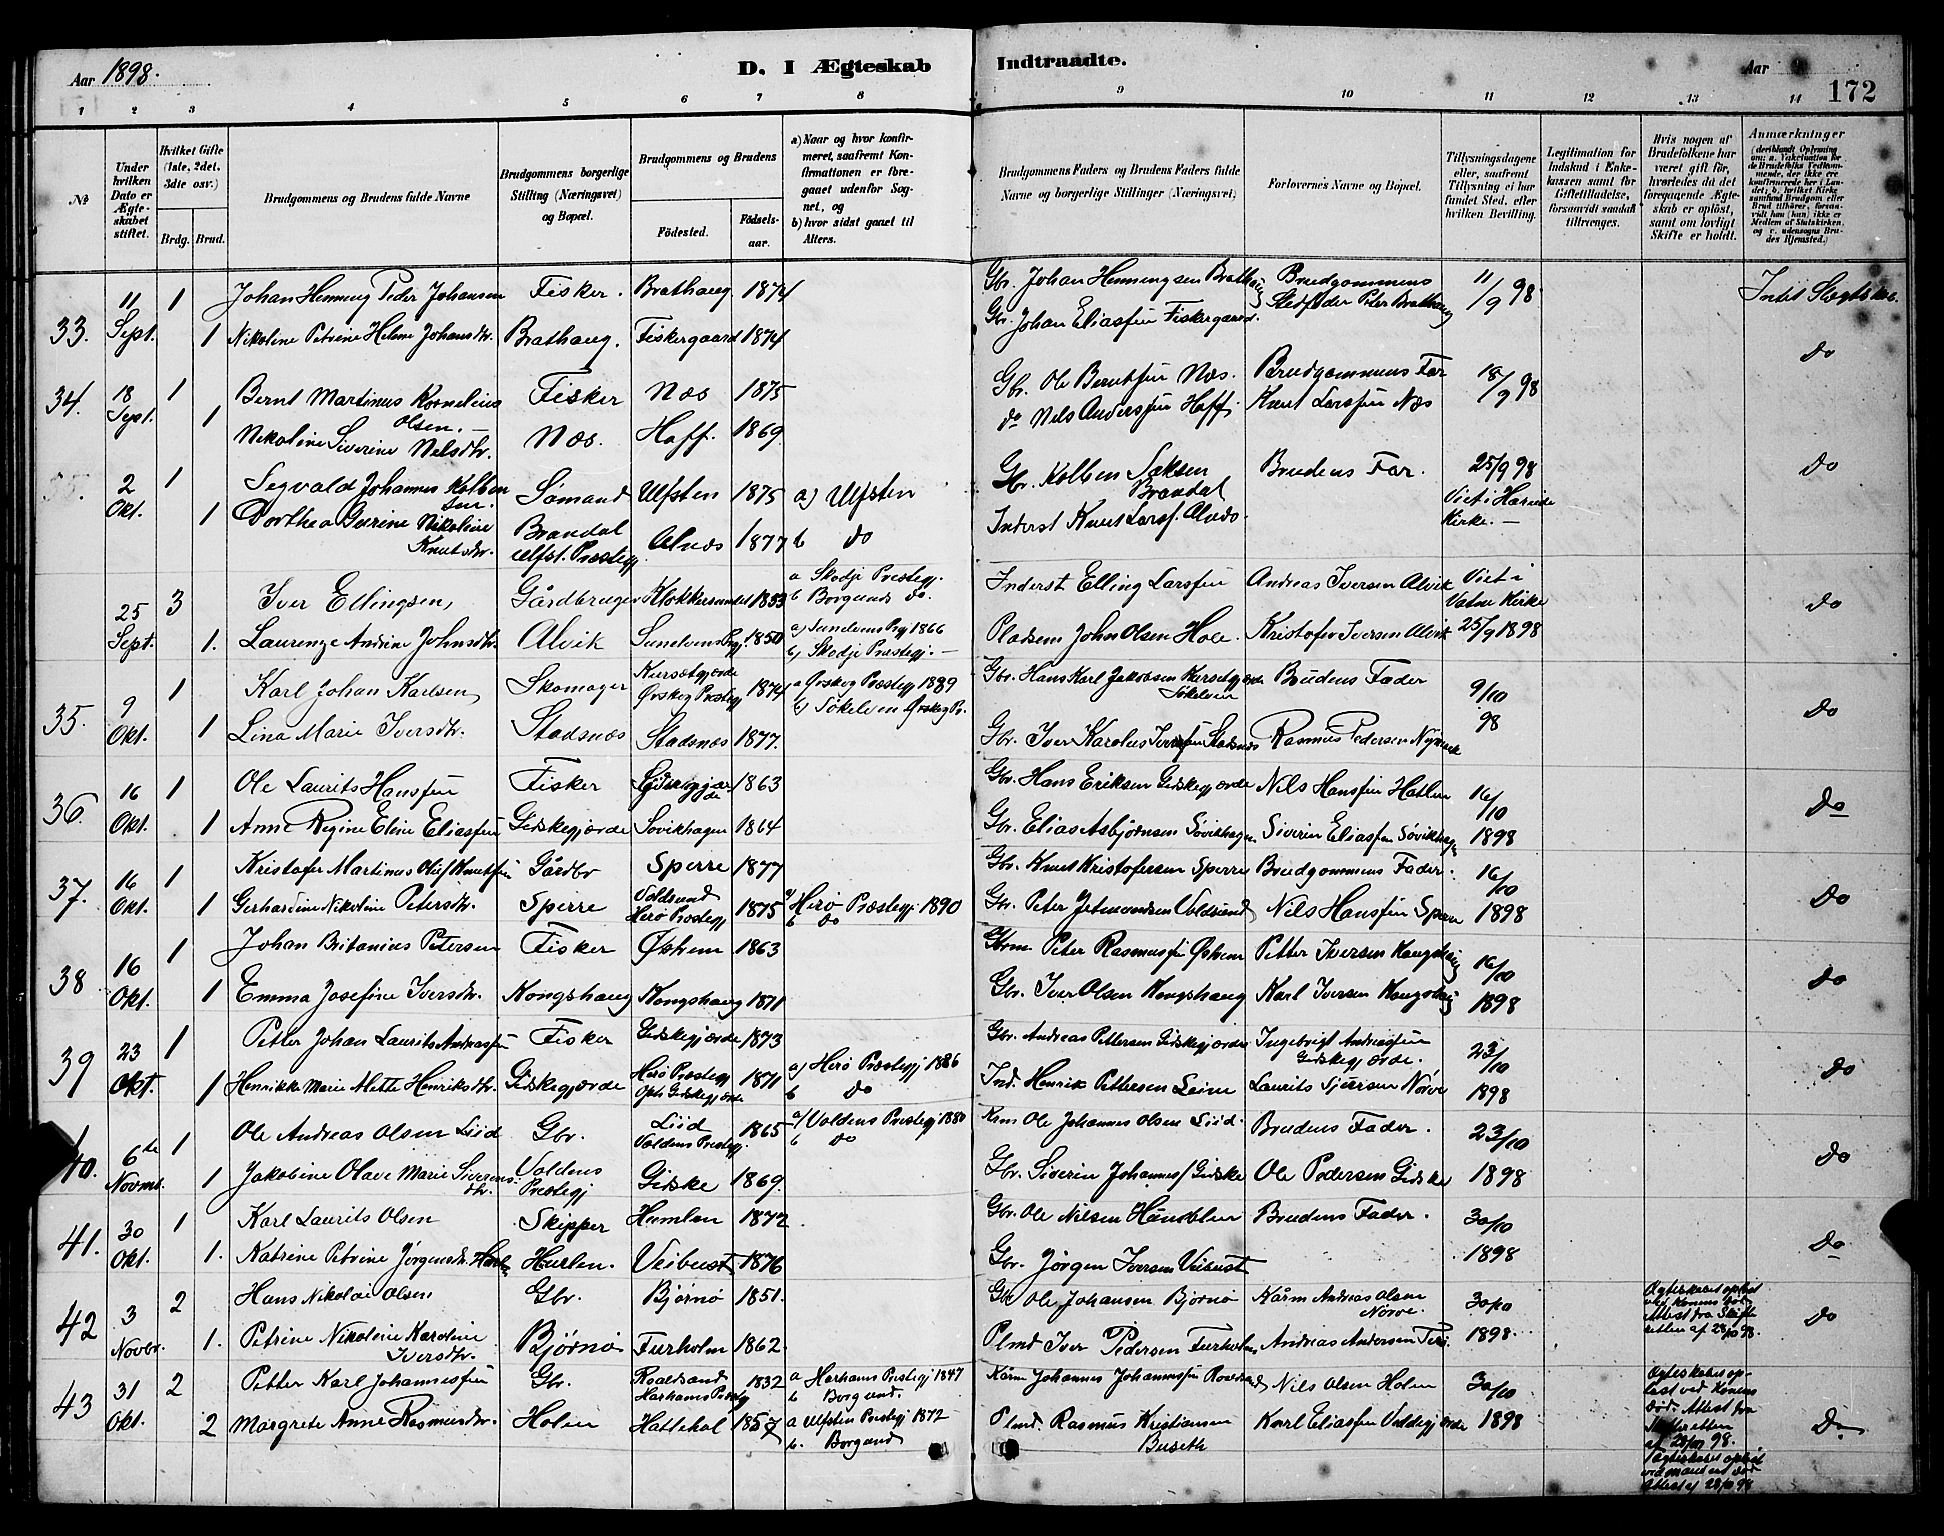 Aar 1898.
D. I Ægteskab
Indtraadte.
Aar
172
1 2 3 4 5 6 7 8 9 10 11 12 13 14
№
Under hvilken Dato er Ægteskabet stiftet.
Hvilket Gifte (1ste, 2det, 3die osv.)
Brdg. Brud.
Brudgommens og Brudens fulde Navne
Brudgommens borgerlige Stilling (Næringsvei) og Bopæl.
Brudgommens og Brudens
Fødested.
Fødselsaar.
a) Naar og hvor konfirmeret, saafremt Konfirmationen er foregaaet udenfor Sognet, og
b) hvor sidst gaaet til Alters.
Brudgommens Faders og Brudens Faders fulde Navne og borgerlige Stillinger (Næringsvei)
Forlovernes Navne og Bopæl.
Tillysningsdagene eller, saafremt Tillysning ei har fundet Sted, efter hvilken Bevilling.
Legitimation for Indskud i Enkekassen samt for Giftetilladelse, forsaavidt saadan tiltrænges.
Hvis nogen af Brudefolkene har været gift før, hvorledes da det foregaaende Ægteskab er opløst, samt om lovligt Skifte er holdt.
Anmærkninger
33. 11 Sept. 1 Johan Henning Peder Johansen Fisker. Brathaug 1874 Gbr. Johan Henningsen Brathaug Brudgommens Stedfader Peter Brathaug 11/9 98 Intet Slegtskab
1 Nikoline Petrine Helene Johansdtr. Brathaug. Fiskergaard 1874 Gbr. Johan Eliassen Fiskergaard. do
34. 18 Sept. 1 Bernt Martinus Kornelius Olsen. Fisker Næs 1875 Gbr. Ole Berntsen Næs. Brudgommens Far 18/9 98
1 Nikoline Siverine Nelsdtr. Næs. Hoff. 1869 do Nils Anderssen Hoff. Knut Larssen Næs
2 Okt. 1 Segvald Johannes Kolbensen. Sømand Ulfsten 1875 a) Ulfsten Gbr. Kolben Saksen Brandal Brudens Far. 25/9 98 do
1 Dorthea Iverine Nikoline Knutsdtr. Brandal Ulfst. Præstegj. Alnæs 1877 b do Inderst Knut Larss. Alnæs. Viet i Hareide Kirke.
25 Sept. 3 Iver Ellingsen, Gårdbruger Klokkersundet 1853 a Skodje Præstegj. b Borgunds do. Inderst Elling Larssen Andreas Iversen Alvik Viet i Vatne Kirke do
1. Laurenze Andrine Johnsdtr. Alvik Sunelvens Prgj. 1850 a) Sunelvens Prgj 1866 b) Skodje Præstegj. Pladsem John Olsen Hole. Kristofer Iversen Alvik 25/9 1898
35. 9 Okt. 1 Karl Johan Karlsen, Skomager Kursetgjærde Ørskog Præstegj 1874 a Ørskog Præstegj 1889 b) Søkelven Ørskog Pr. Gbr. Hans Karl Jakobsen Kursetgjærde Søkelven Brudens Fader 9/10 98 do
1 Lina Marie Iversdtr. Stadsnæs Stadsnæs 1877. Gbr. Iver Karolus Iverssen Stadsnæs Rasmus Pedersen
36. 16 Okt. 1 Ole Laurits Hanssen Fisker Gidskegjærde 1863 Gbr. Hans Eriksen Gidskegjærde Nils Hanssen Hatlen 16/10 do
1 Anne Regine Eline Eliassen Gidskegjærde Søvikhagen 1864 Gbr. Elias Asbjørnsen Søvikhagen Siverin Eliassen Søvikhagen 1898
37. 16 Okt. 1 Kristofer Martinus Oluf Knutsen Gårdbr Sperre 1877 Gbr. Knut Kristofersen Sperre Brudgommens Fader. 16/10 do
1 Gerhardine Nikoline Petersdtr. Sperre Voldsund Herø Præstegj 1875 a Herø Præstegj 1890 b do Gbr. Peter Jetmundsen Voldsund Nils Hanssen Sperre 1898
38 16 Okt. 1 Johan Britanius Petersen Fisker Østrem 1863 Gbrm. Peter Rasmussen Østrem Petter Iversen Kongshaug 16/10 do
1 Emma Josefine Iversdtr. Kongshaug Kongshaug 1871 Gbr. Iver Olsen Kongshaug Karl Iversen Kongshaug 1898
39 23 Okt. 1 Petter Johan Laurits Andreassen Fisker Gidskegjærde 1873 Gbr. Andreas Pettersen Gidskegjærde Ingebrigt Andreassen Gidskegjærde. 23/10 do
1 Henrikke Marie Mette Henriksdtr. Gidskegjærde Herø Præstegj Oph. Gidskegjærde 1871 a) Herø Præstegj 1886 b do Ind. Henrik Pettersen Leine Laurits Sjursen Nørve 1898
40. 6te Novmb. 1 Ole Andreas Olsen Liid Gbr. Liid Voldens Prestegj. 1865 a) Voldens Prestegj 1880 b do Ole Johannes Olsen Liid. Brudens Fader. 23/10 do
1 Jakobine Olave Marie Siverinsdtr. Voldens Prestegj Gidske 1869. Gbr. Siverin Johanness Gidske Ole Pedersen Gidske 1898
41. 30 Okt. 1 Karl Laurits Olsen Skipper Humlen 1872 Gbr. Ole Nilsen Brudens Fader. 30/10 do
1. Katrine Petrine Jørgensdtr. Veibust 1876 Gbr. Jørgen Iversen Veibust 1898
42 3 Novbr. 2 Hans Nikolai Olsen Gbr. Bjørnø 1851. Gbr Ole Johansen Bjørnø Kårm Andreas Olsen Nørve. 30/10 Ægteskabet opløst ved Konens Død. Attest fra Skifteretten af 28/10 98. do
1. Petrine Nikoline Karoline Iversdtr. Bjørnø Furholm 1862. Plmd Iver Pedersen Furholm Andreas Andersen 1898.
43 31 Okt. 2 Petter Karl Johannessen Gbr. Roaldsand Harhams Prestegj 1832 a Harhams Prestegj 1847 b Borgund. Kårm Johannes Johannessen Roaldsand Nils Olsen Holen 30/10 Ægteskabet opløst ved Konens Død. Attest fra Skifteretten af 28/10 98. Do
2 Margrete Anne Rasmusdtr. Holen Hattehol 1857 a Ulfsten Prestegj 1872 b. Borgund Plmd. Rasmus Kristiansen Buseth Karl Eliassen Valdegjærde 1898 Ægteskabet opløst ved Mandens Død Attest af 28/10 98